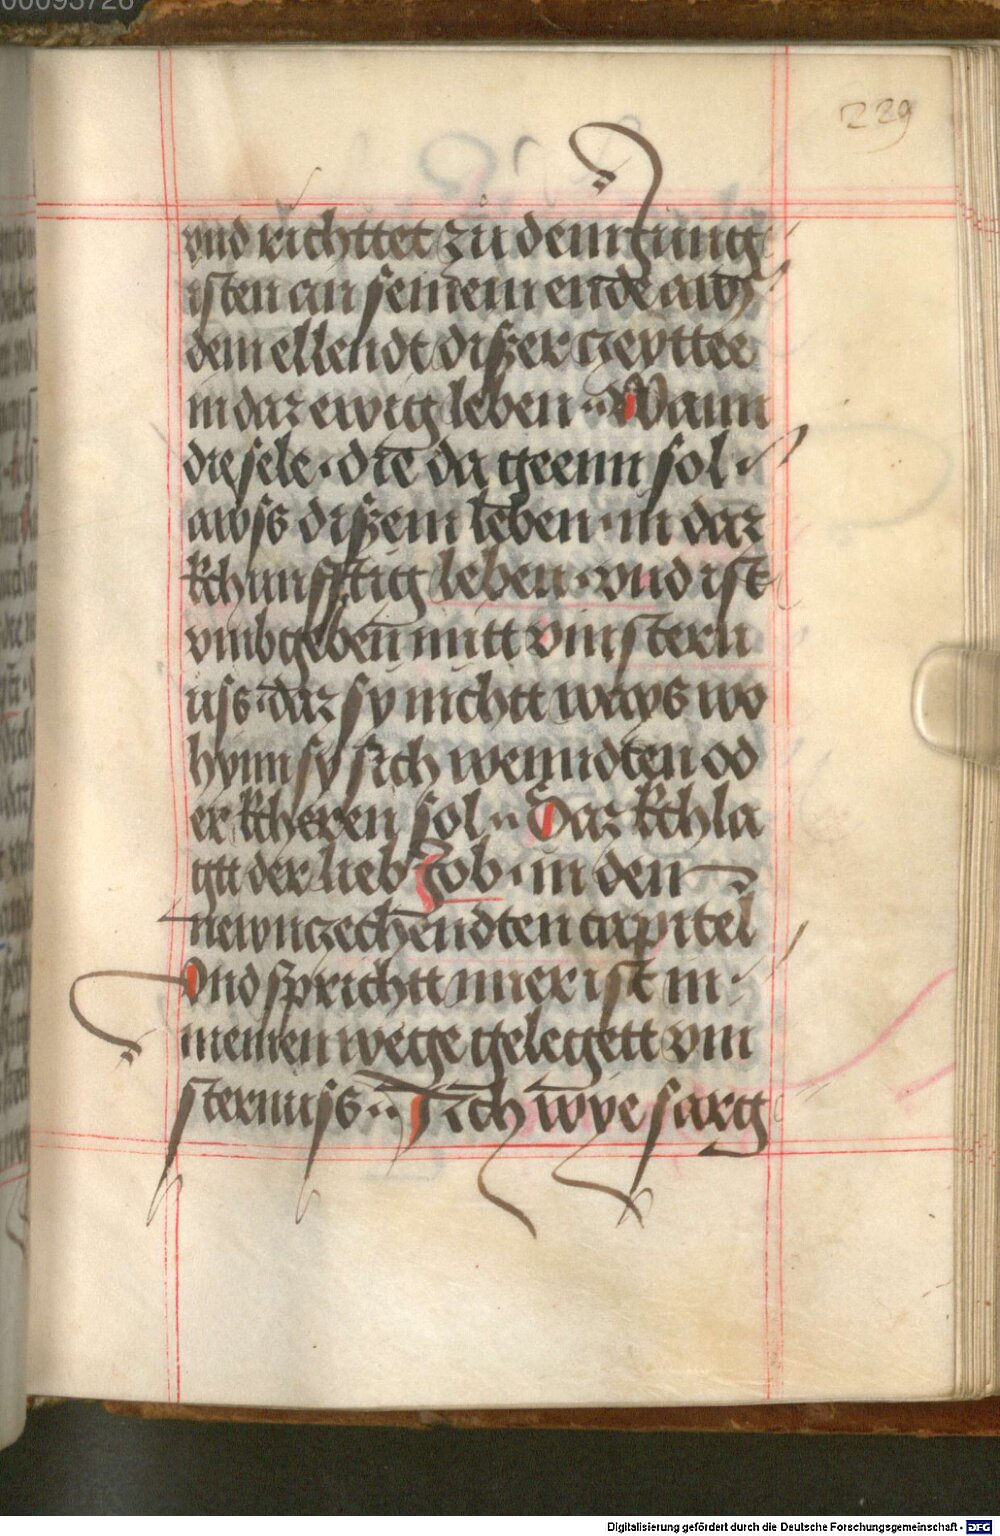 00093726
229
vnd richttet zu dem jüng
isten an seinem ende aws
dem ellendt diszer czeyttee
in daz ewig leben ·· Wann
die sele · die da geenn sol ·
awss diszem leben · in daz
kchunfftig leben · vnd ist
vmbgeben mitt vinstern
üss · daz sy nichtt ways wo
hynn sy sich wenndten od
er kcheren sol ·· Daz kchla
gtt der lieb Job · in den
newnczechendten capitel
Vnd sprichtt mier ist in ·
meinen wege gelegett vin
sternuss ·· Ich wye sarg
Digitalisierung gefördert durch die Deutsche Forschungsgemeinschaft - DFG